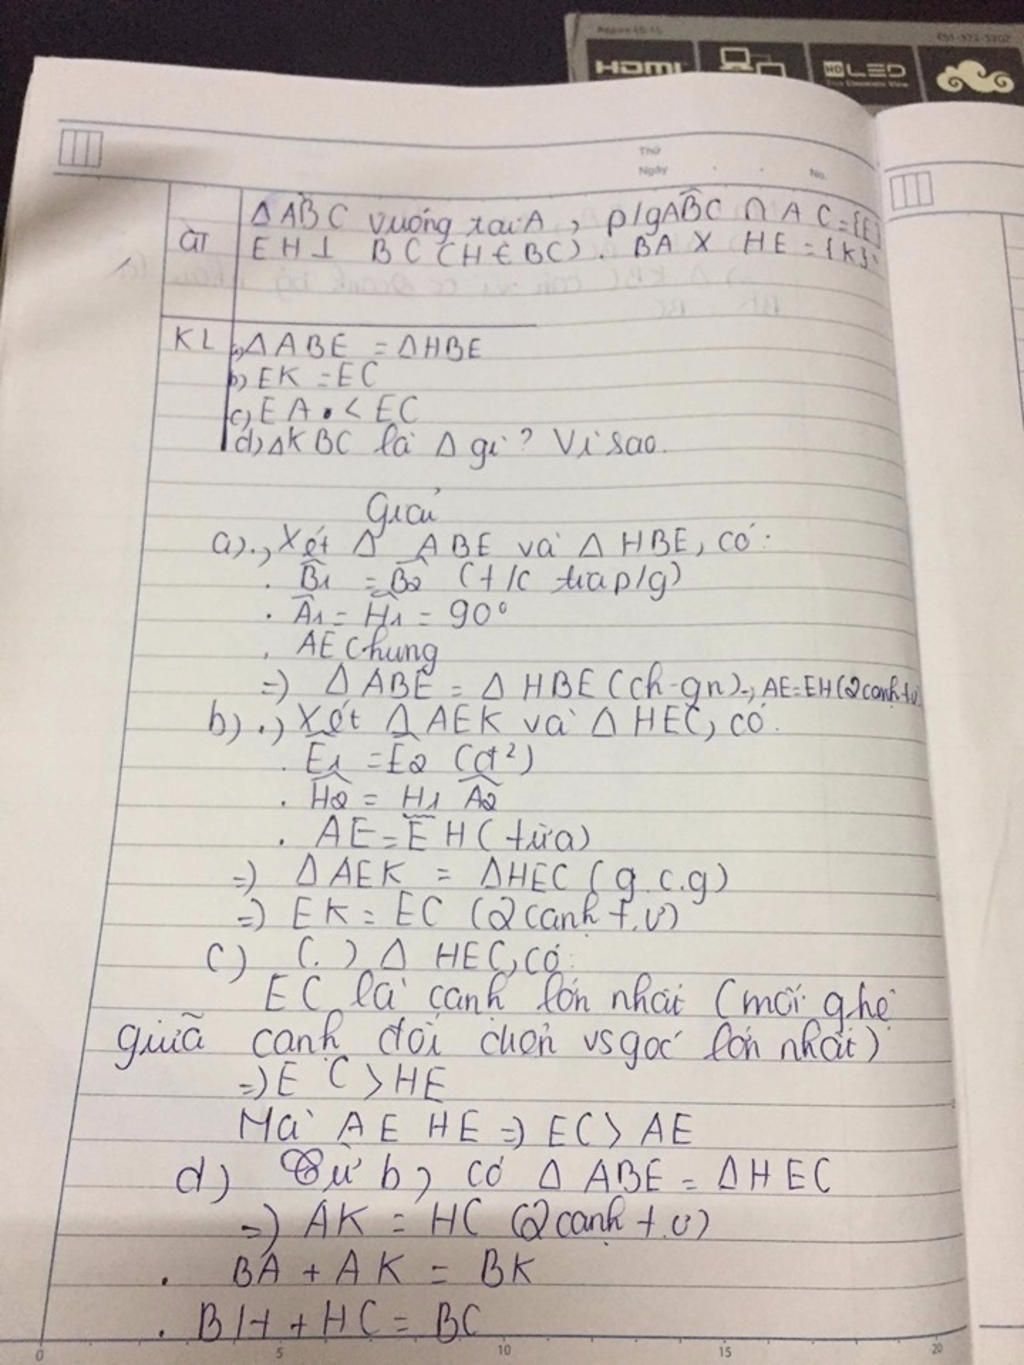 Aspire ES 15
ES1-572-32GZ
HDMI
HD LED
Thứ
Ngày
No.
GT
Δ ABC vuông tại A, p/g ABC ∩ AC = {E}
EH ⊥ BC (H ∈ BC). BA X HE = {K}
KL
a) Δ ABE = Δ HBE
b) EK = EC
c) EA < EC
d) Δ KBC là Δ gì? Vì sao.
Giải
a) ., Xét Δ ABE và Δ HBE, có:
. B1 = B2 (t/c tia p/g)
. A1 = H1 = 90°
. AE Chung
=) Δ ABE = Δ HBE (ch-gn) -, AE = EH (2 cạnh t.ư)
b) ., Xét Δ AEK và Δ HEC, có.
. E1 = E2 (đ²)
. H2 = H1 A2
. AE = EH (từ a)
=) Δ AEK = Δ HEC (g.c.g)
=) EK = EC (2 cạnh t.ư)
c) (.) Δ HEC, có:
EC là cạnh lớn nhất (mối qhệ
giữa cạnh đối diện vs góc lớn nhất)
=) EC > HE
Mà AE HE =) EC > AE
d) Từ b) có Δ ABE = Δ HEC
=) AK = HC (2 cạnh t.ư)
. BA + AK = BK
. BH + HC = BC
0 5 10 15 20